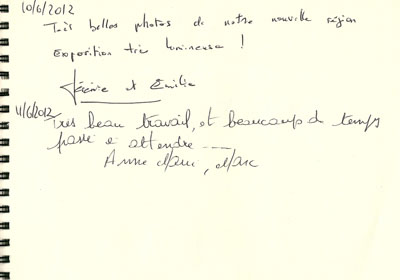 10/6/2012
Très belles photos de notre nouvelle région
Exposition très lumineuse !
Jérémie et Emilie
11/6/2012
Très beau travail, et beaucoup de temps
passé à attendre ----
Anne Marie, Marc